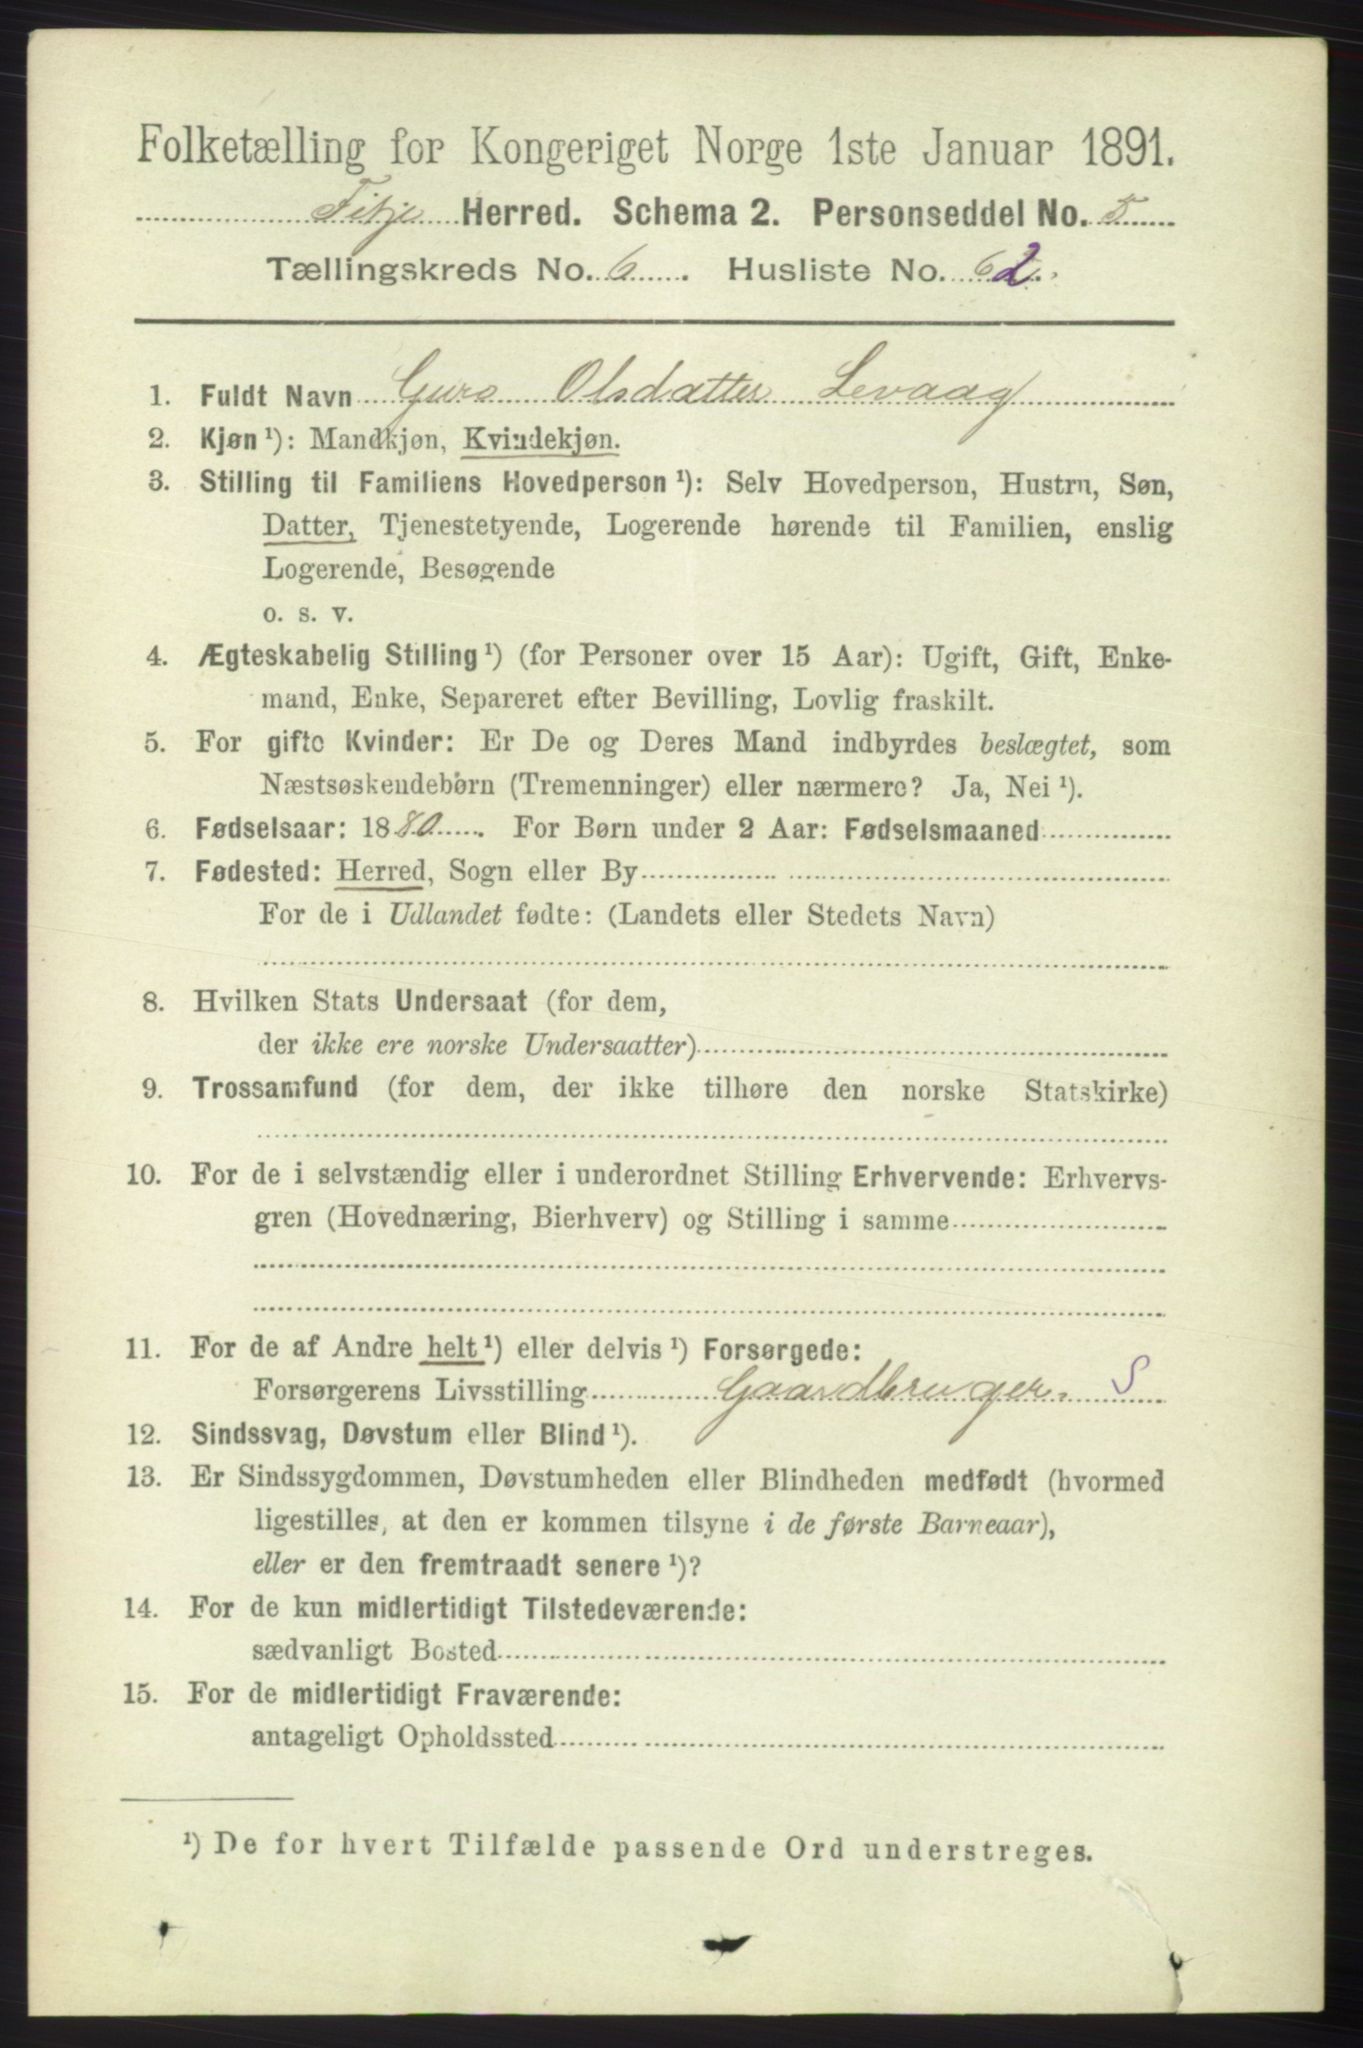 Folketælling for Kongeriget Norge 1ste Januar 1891.
Fitje Herred. Schema 2. Personseddel No. 5
Tællingskreds No. 6. Husliste No. 62.
1. Fuldt Navn Guro Olsdatter Levaag
2. Kjøn ¹): Mandkjøn, Kvindekjøn.
3. Stilling til Familiens Hovedperson ¹): Selv Hovedperson, Hustru, Søn,
Datter, Tjenestetyende, Logerende hørende til Familien, enslig
Logerende, Besøgende
o. s. v.
4. Ægteskabelig Stilling ¹) (for Personer over 15 Aar): Ugift, Gift, Enke-
mand, Enke, Separeret efter Bevilling, Lovlig fraskilt.
5. For gifte Kvinder: Er De og Deres Mand indbyrdes beslægtet, som
Næstsøskendebørn (Tremenninger) eller nærmere? Ja, Nei ¹).
6. Fødselsaar: 1880. For Børn under 2 Aar: Fødselsmaaned
7. Fødested: Herred, Sogn eller By
For de i Udlandet fødte: (Landets eller Stedets Navn)
8. Hvilken Stats Undersaat (for dem,
der ikke ere norske Undersaatter)
9. Trossamfund (for dem, der ikke tilhøre den norske Statskirke)
10. For de i selvstændig eller i underordnet Stilling Erhvervende: Erhvervs-
gren (Hovednæring, Bierhverv) og Stilling i samme
11. For de af Andre helt ¹) eller delvis ¹) Forsørgede:
Forsørgerens Livsstilling Gaardbruger. S
12. Sindssvag, Døvstum eller Blind ¹).
13. Er Sindssygdommen, Døvstumheden eller Blindheden medfødt (hvormed
ligestilles, at den er kommen tilsyne i de første Barneaar),
eller er den fremtraadt senere ¹)?
14. For de kun midlertidigt Tilstedeværende:
sædvanligt Bosted
15. For de midlertidigt Fraværende:
antageligt Opholdssted
¹) De for hvert Tilfælde passende Ord understreges.